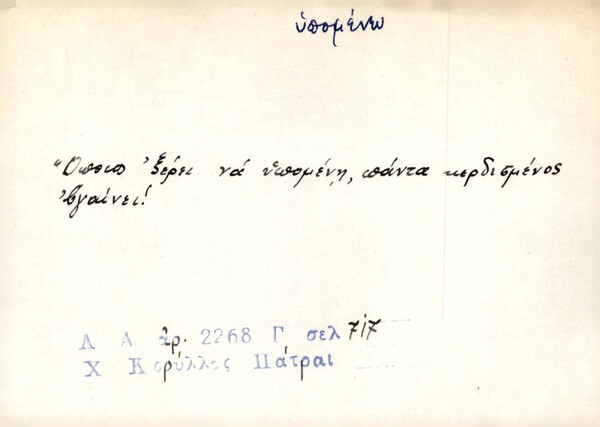 ὑπομένω
Ὅποιος ξέρει νά ὑπομένῃ, πάντα κερδισμένος
'βγαίνει!
Λ Α ἀρ. 2268 Γ σελ 717
Χ Κορύλλος Πάτραι